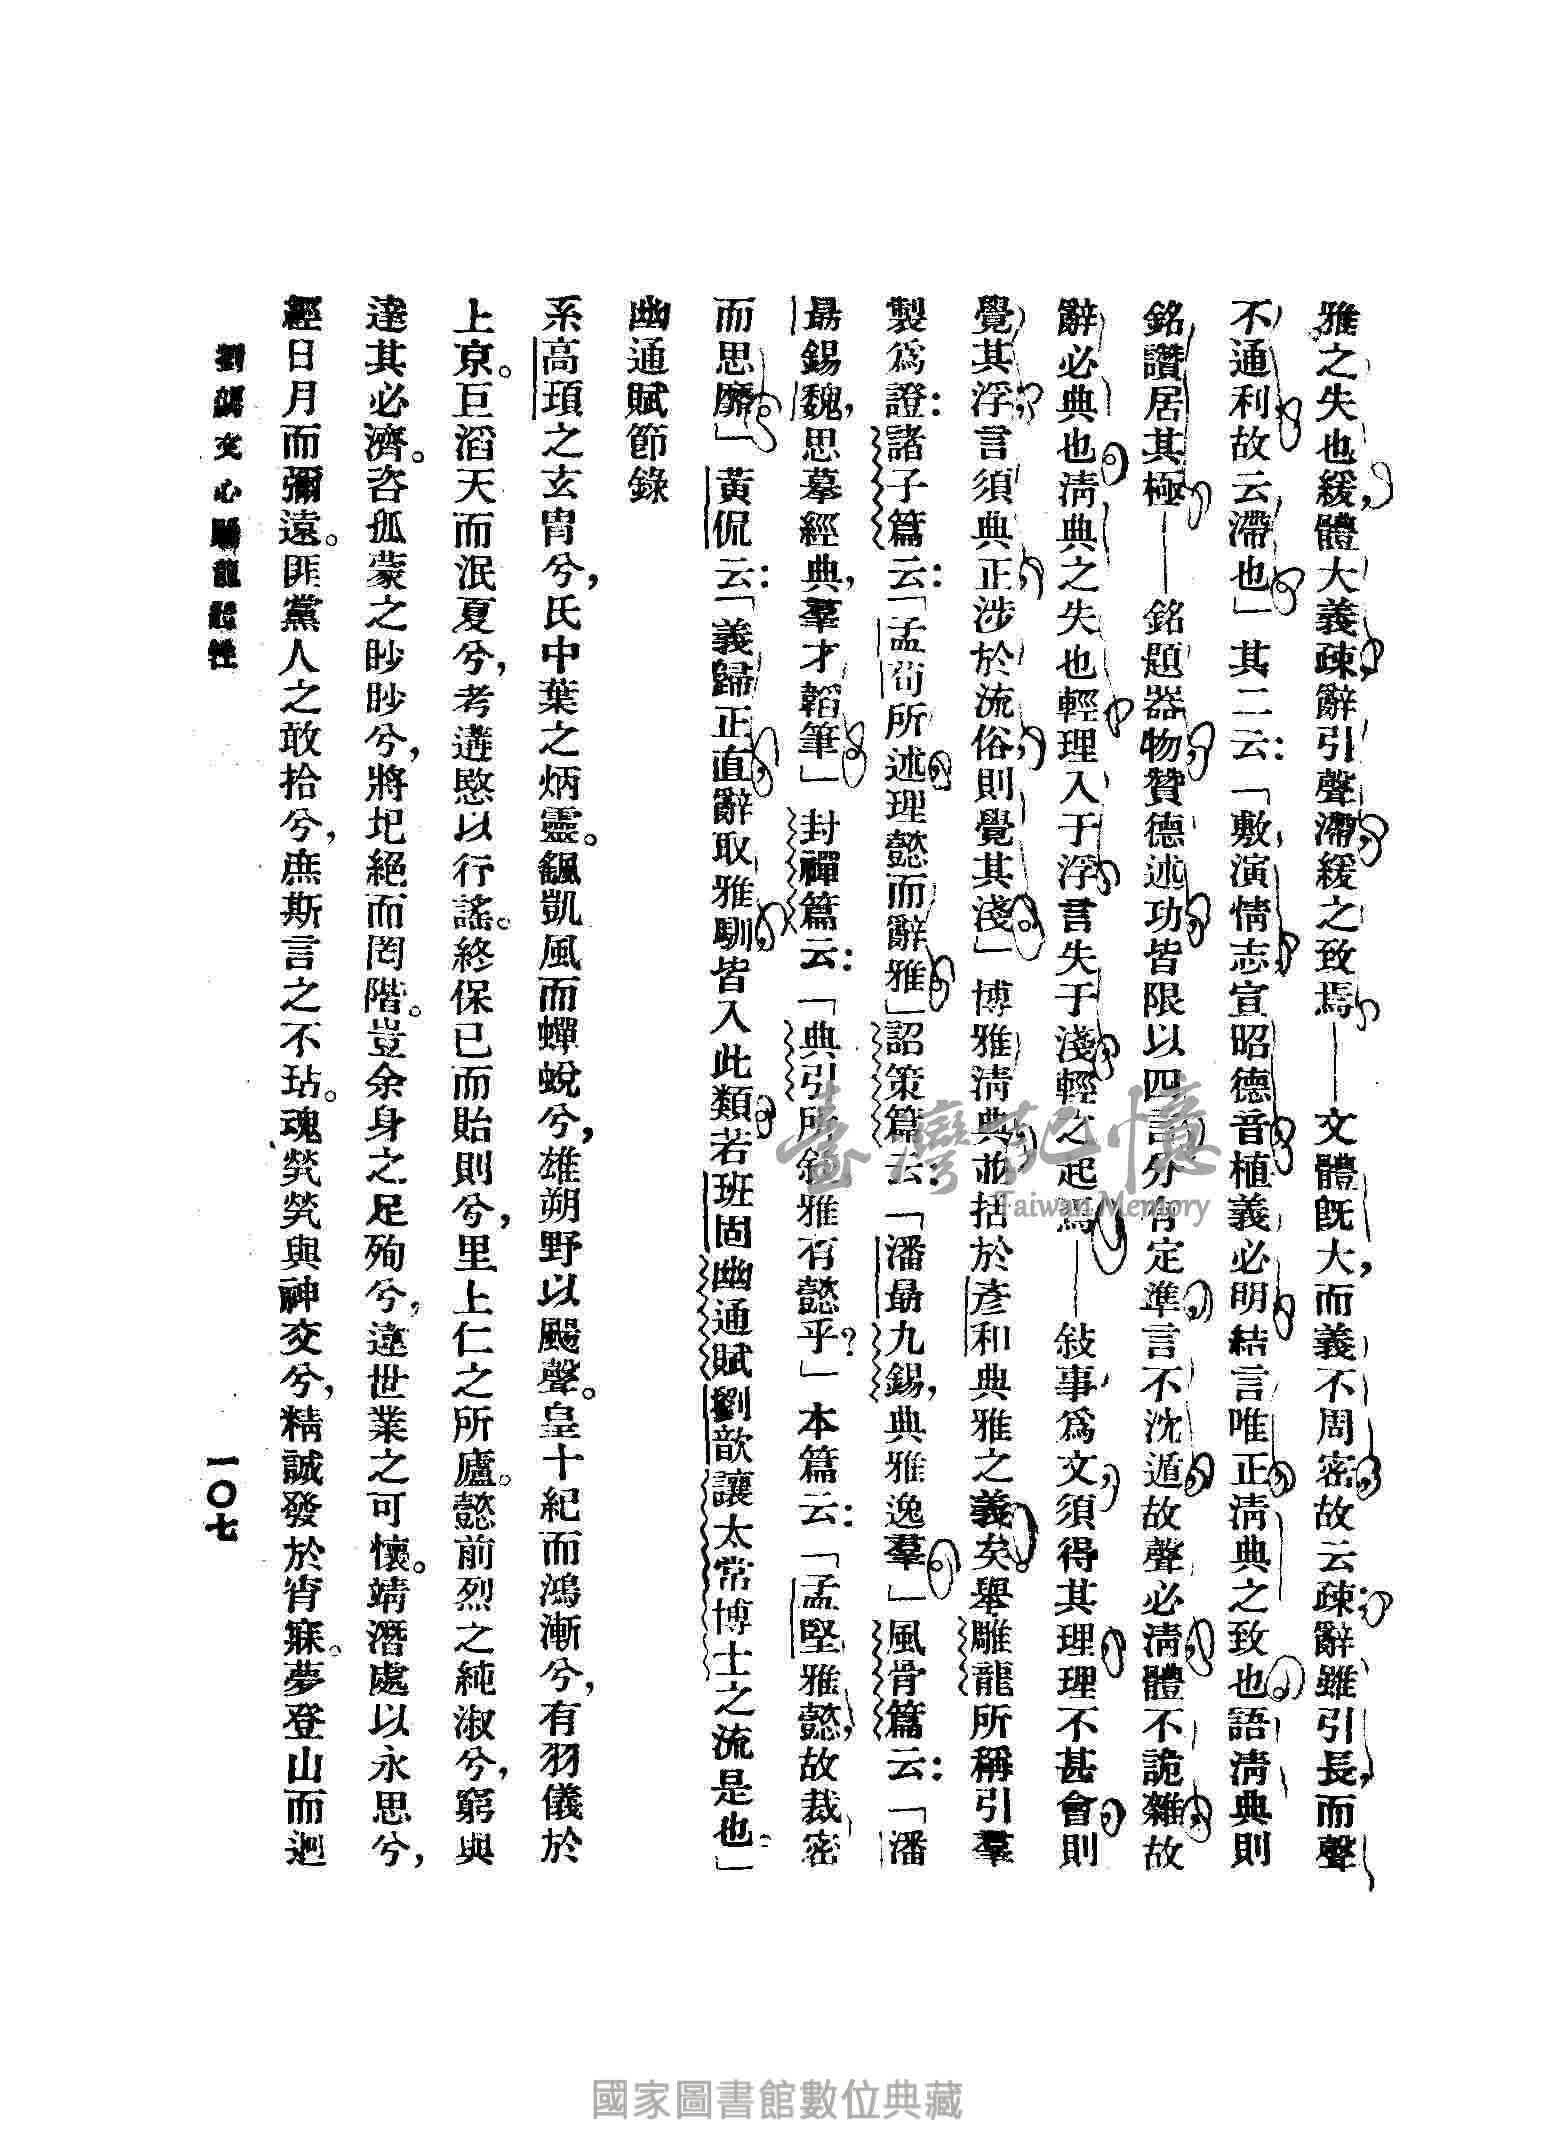 雅之失也緩，體大義疎，辭引聲滯，緩之致焉——文體旣大，而義不周密，故云疎，辭雖引長，而聲
不通利，故云滯也」其二云：「敷演情志，宣昭德音，植義必明，結言唯正，淸典之致也。語淸典則
銘讚居其極——銘題器物，贊德述功，皆限以四言，分有定準，言不沈遁，故聲必淸，體不詭雜，故
辭必典也，淸典之失也輕，理入于浮，言失于淺，輕之起焉——敍事爲文，須得其理，理不甚會，則
覺其浮，言須典正，涉於流俗，則覺其淺」博雅淸典，並括於彥和典雅之義矣。舉雕龍所稱引羣
製爲證：諸子篇云：「孟荀所述，理懿而辭雅」詔策篇云：「潘勗九錫，典雅逸羣。」風骨篇云：「潘
勗錫魏，思摹經典，羣才韜筆」封禪篇云：「典引所敍，雅有懿乎？」本篇云：「孟堅雅懿，故裁密
而思靡。」黃侃云：「義歸正直，辭取雅馴，皆入此類，若班固幽通賦劉歆讓太常博士之流是也」
幽通賦節錄
系高頊之玄冑兮，氏中葉之炳靈。飊凱風而蟬蛻兮，雄朔野以颺聲。皇十紀而鴻漸兮，有羽儀於
上京。巨滔天而泯夏兮，考遘愍以行謠。終保已而貽則兮，里上仁之所廬。懿前烈之純淑兮，窮與
達其必濟。咨孤蒙之眇眇兮，將圮絕而罔階。豈余身之足殉兮，違世業之可懷。靖潛處以永思兮，
經日月而彌遠。匪黨人之敢拾兮，庶斯言之不玷。魂煢煢與神交兮，精誠發於宵寐。夢登山而迥
劉勰文心雕龍體性
一〇七
臺灣記憶
Taiwan Memory
國家圖書館數位典藏